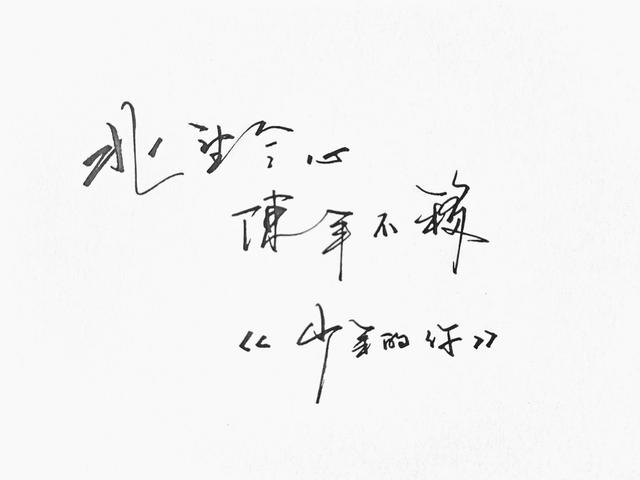 北望今心
陳年不移
《少年的你》